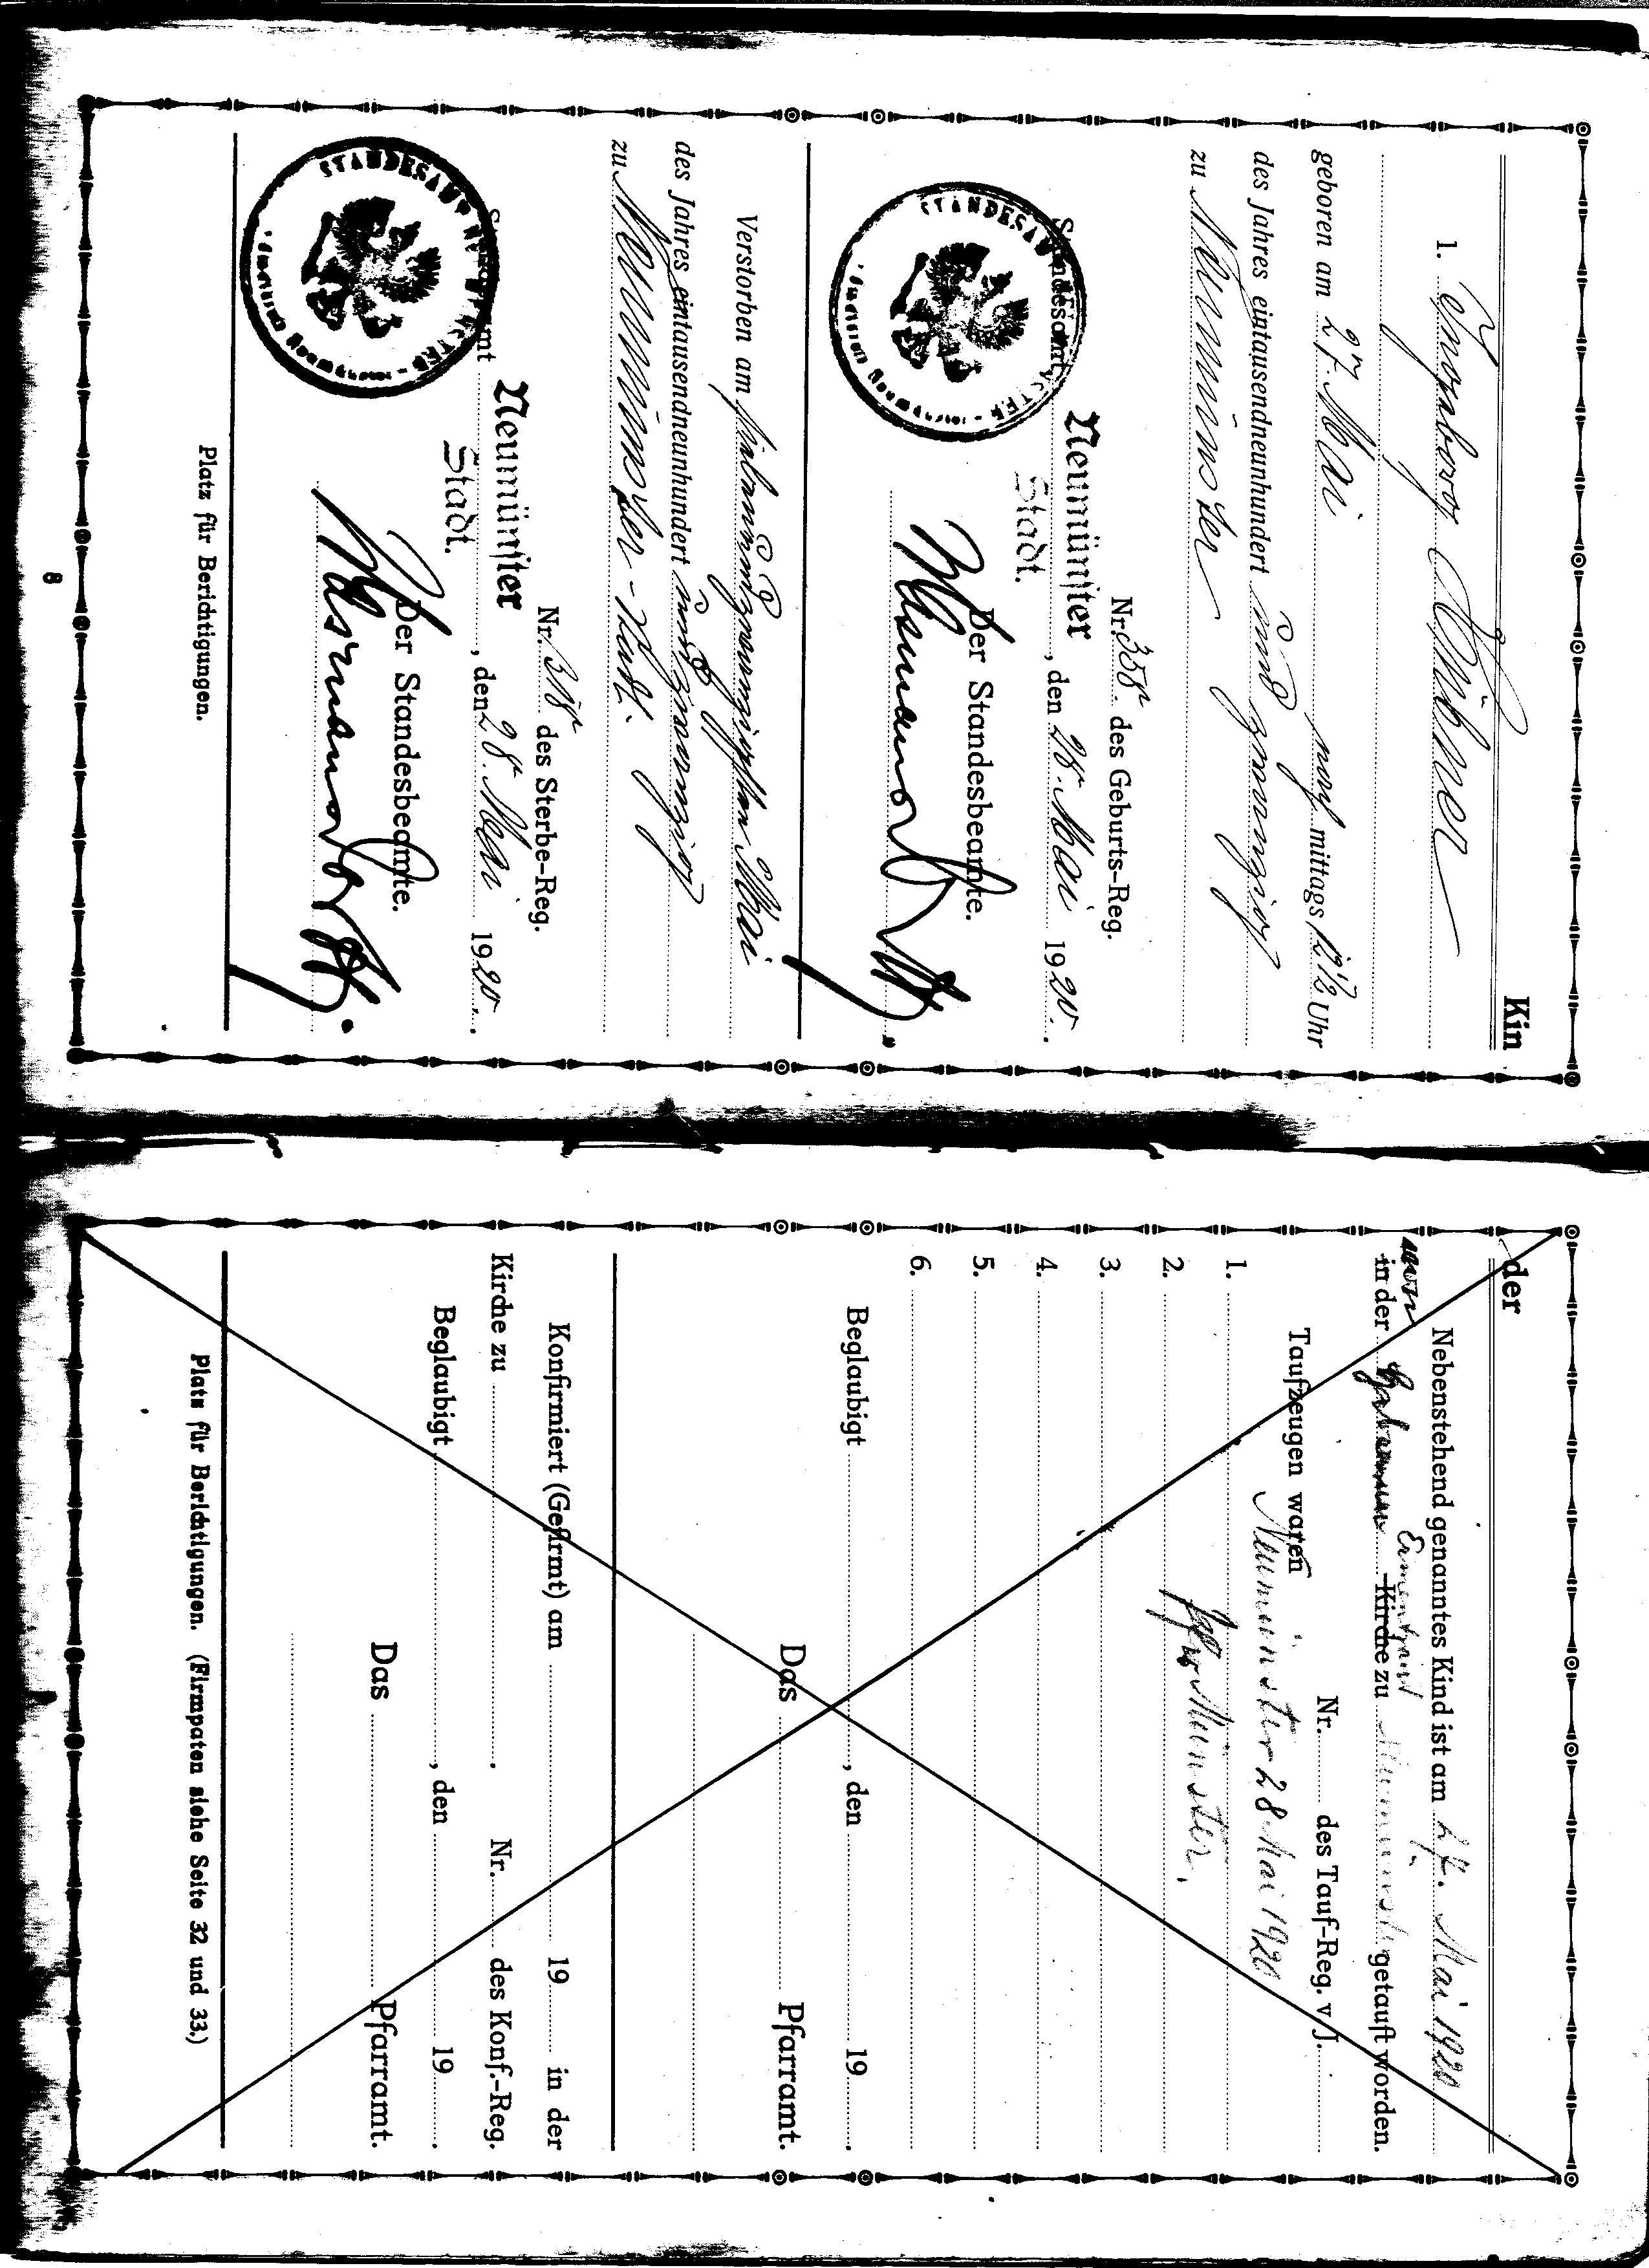 Kinder
1. Ingeborg Hübner
geboren am 27. Mai nachmittags 12 1/2 Uhr
des Jahres eintausendneunhundert und zwanzig
zu Neumünster
Nr. 358 des Geburts-Reg.
Standesamt Neumünster, den 28. Mai 1920.
Stadt.
Der Standesbeamte.
STANDESAMT NEUMÜNSTER
Verstorben am siebenundzwanzigsten Mai
des Jahres eintausendneunhundert und zwanzig
zu Neumünster-Stadt.
Nr. 318 des Sterbe-Reg.
Standesamt Neumünster, den 28. Mai 1920.
Stadt.
Der Standesbeamte.
STANDESAMT NEUMÜNSTER
Platz für Berichtigungen.
8
Nebenstehend genanntes Kind ist am 27. Mai 1920
in der Kirche zu Neumünster getauft worden.
Nr. des Tauf-Reg. v. J.
Taufzeugen waren
1. Neumünster 28. Mai 1920
2.
3.
4.
5.
6.
Beglaubigt , den 19 .
Das Pfarramt.
Konfirmiert (Gefirmt) am 19 in der
Kirche zu . Nr. des Konf.-Reg.
Beglaubigt , den 19 .
Das Pfarramt.
Platz für Berichtigungen. (Firmpaten siehe Seite 32 und 33.)